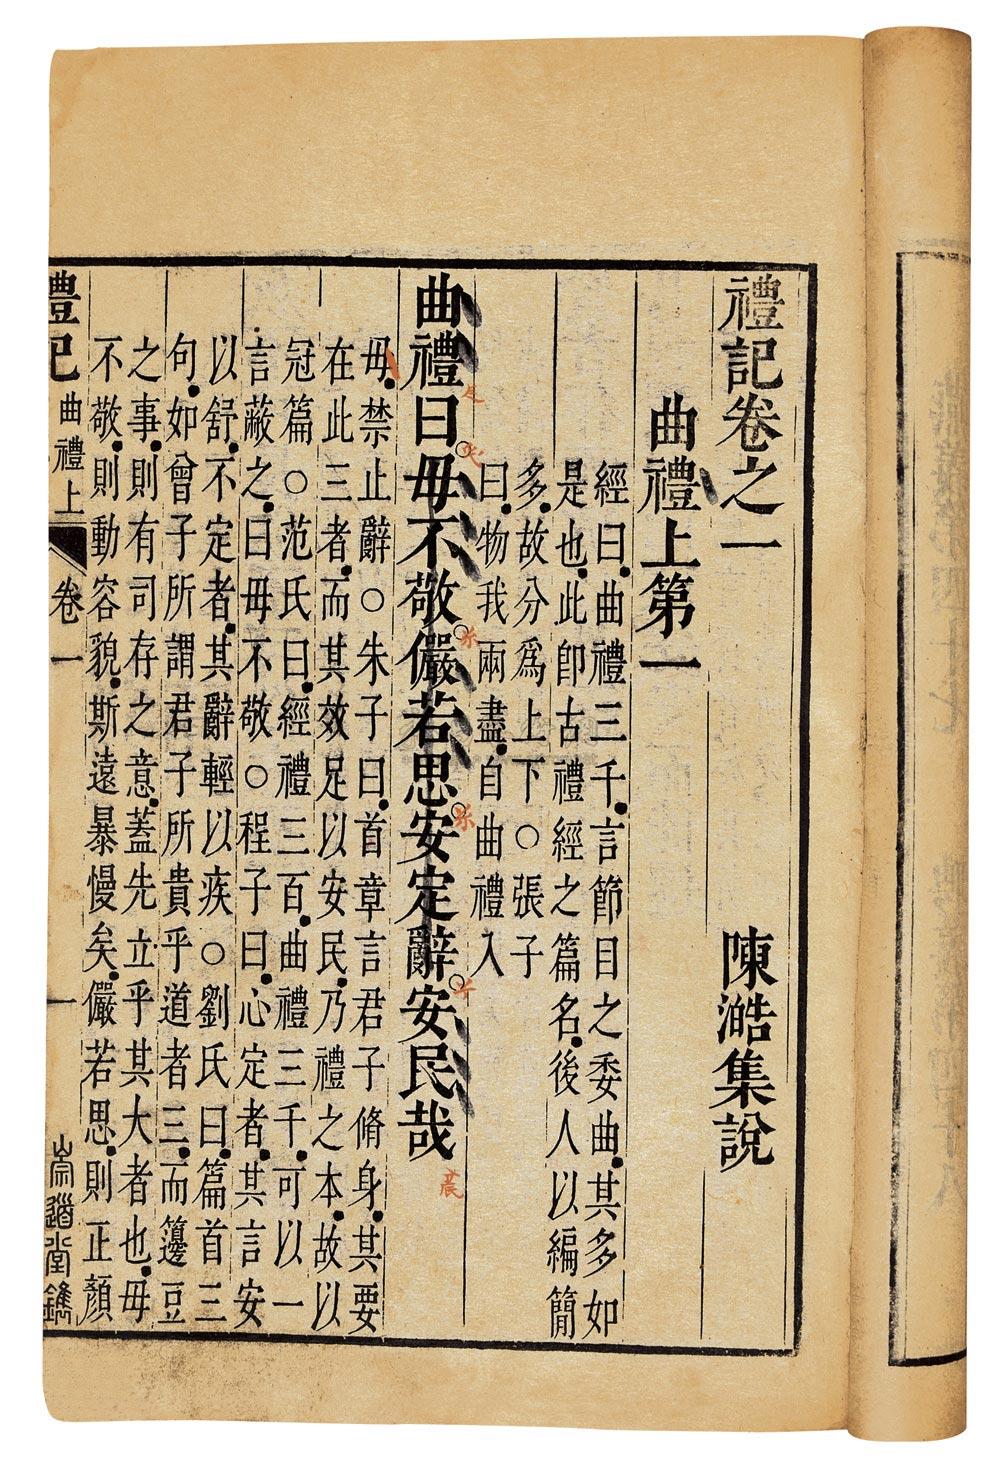 禮記卷之一
陳澔集說
曲禮上第一
經曰曲禮三千言節目之委曲其多如
是也此卽古禮經之篇名後人以編簡
多故分爲上下○張子
曰物我兩盡自曲禮入
曲禮曰毋不敬儼若思安定辭安民哉
毋禁止辭○朱子曰首章言君子脩身其要
在此三者而其效足以安民乃禮之本故以
冠篇○范氏曰經禮三百曲禮三千可以一
言蔽之曰毋不敬○程子曰心定者其言安
以舒不定者其辭輕以疾○劉氏曰篇首三
句如曾子所謂君子所貴乎道者三而籩豆
之事則有司存之意蓋先立乎其大者也毋
不敬則動容貌斯遠暴慢矣儼若思則正顏
禮記
曲禮上
卷一
一
崇道堂鐫